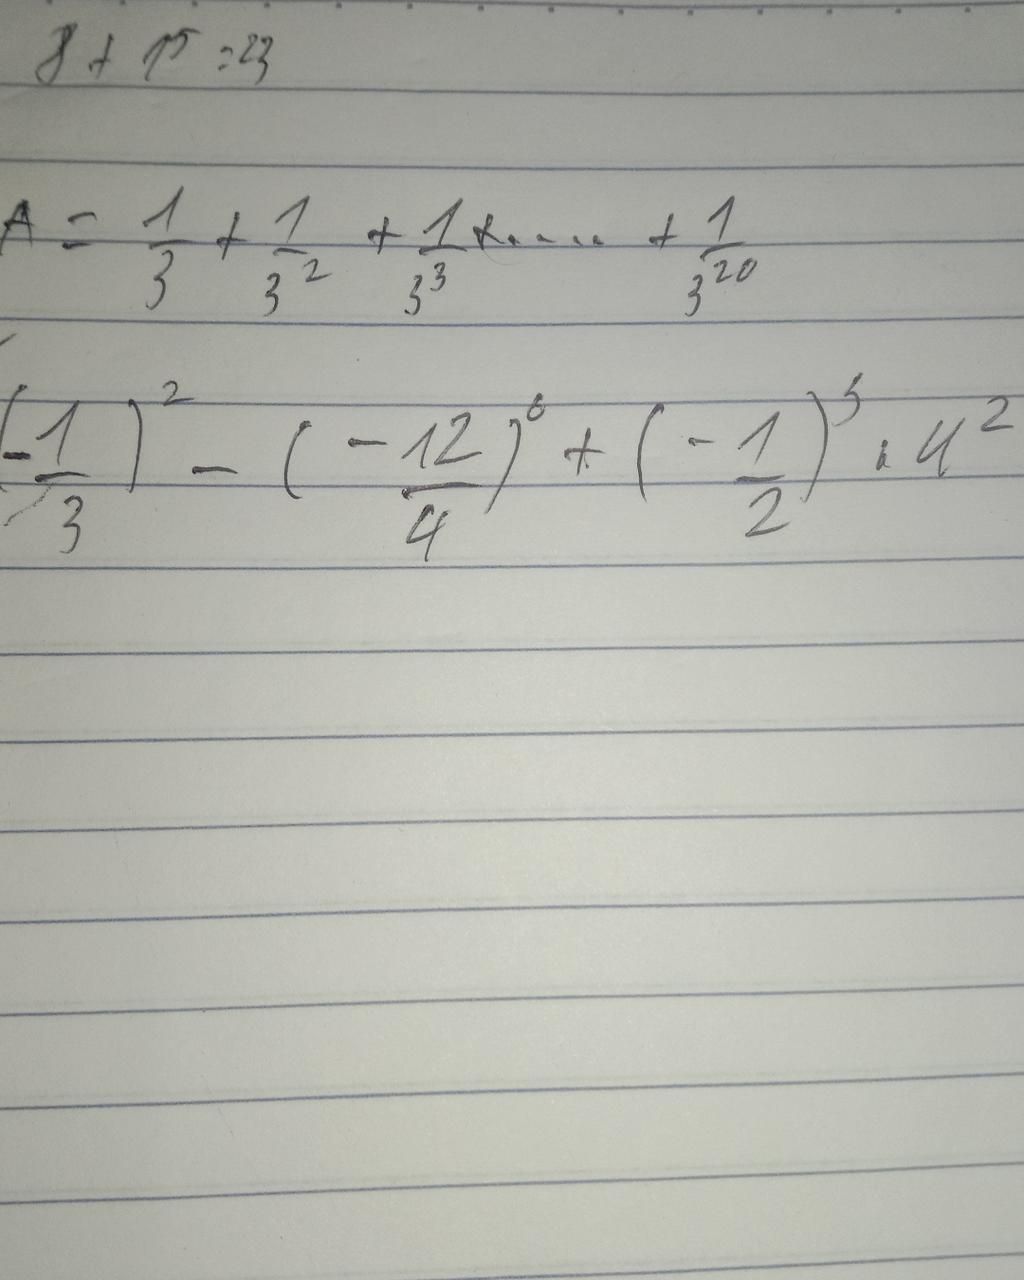 8 + 15 = 23
A = 1/3 + 1/3² + 1/3³ + ..... + 1/3²⁰
(-1/3)² - (-12/4)⁰ + (-1/2)⁵ . 4²